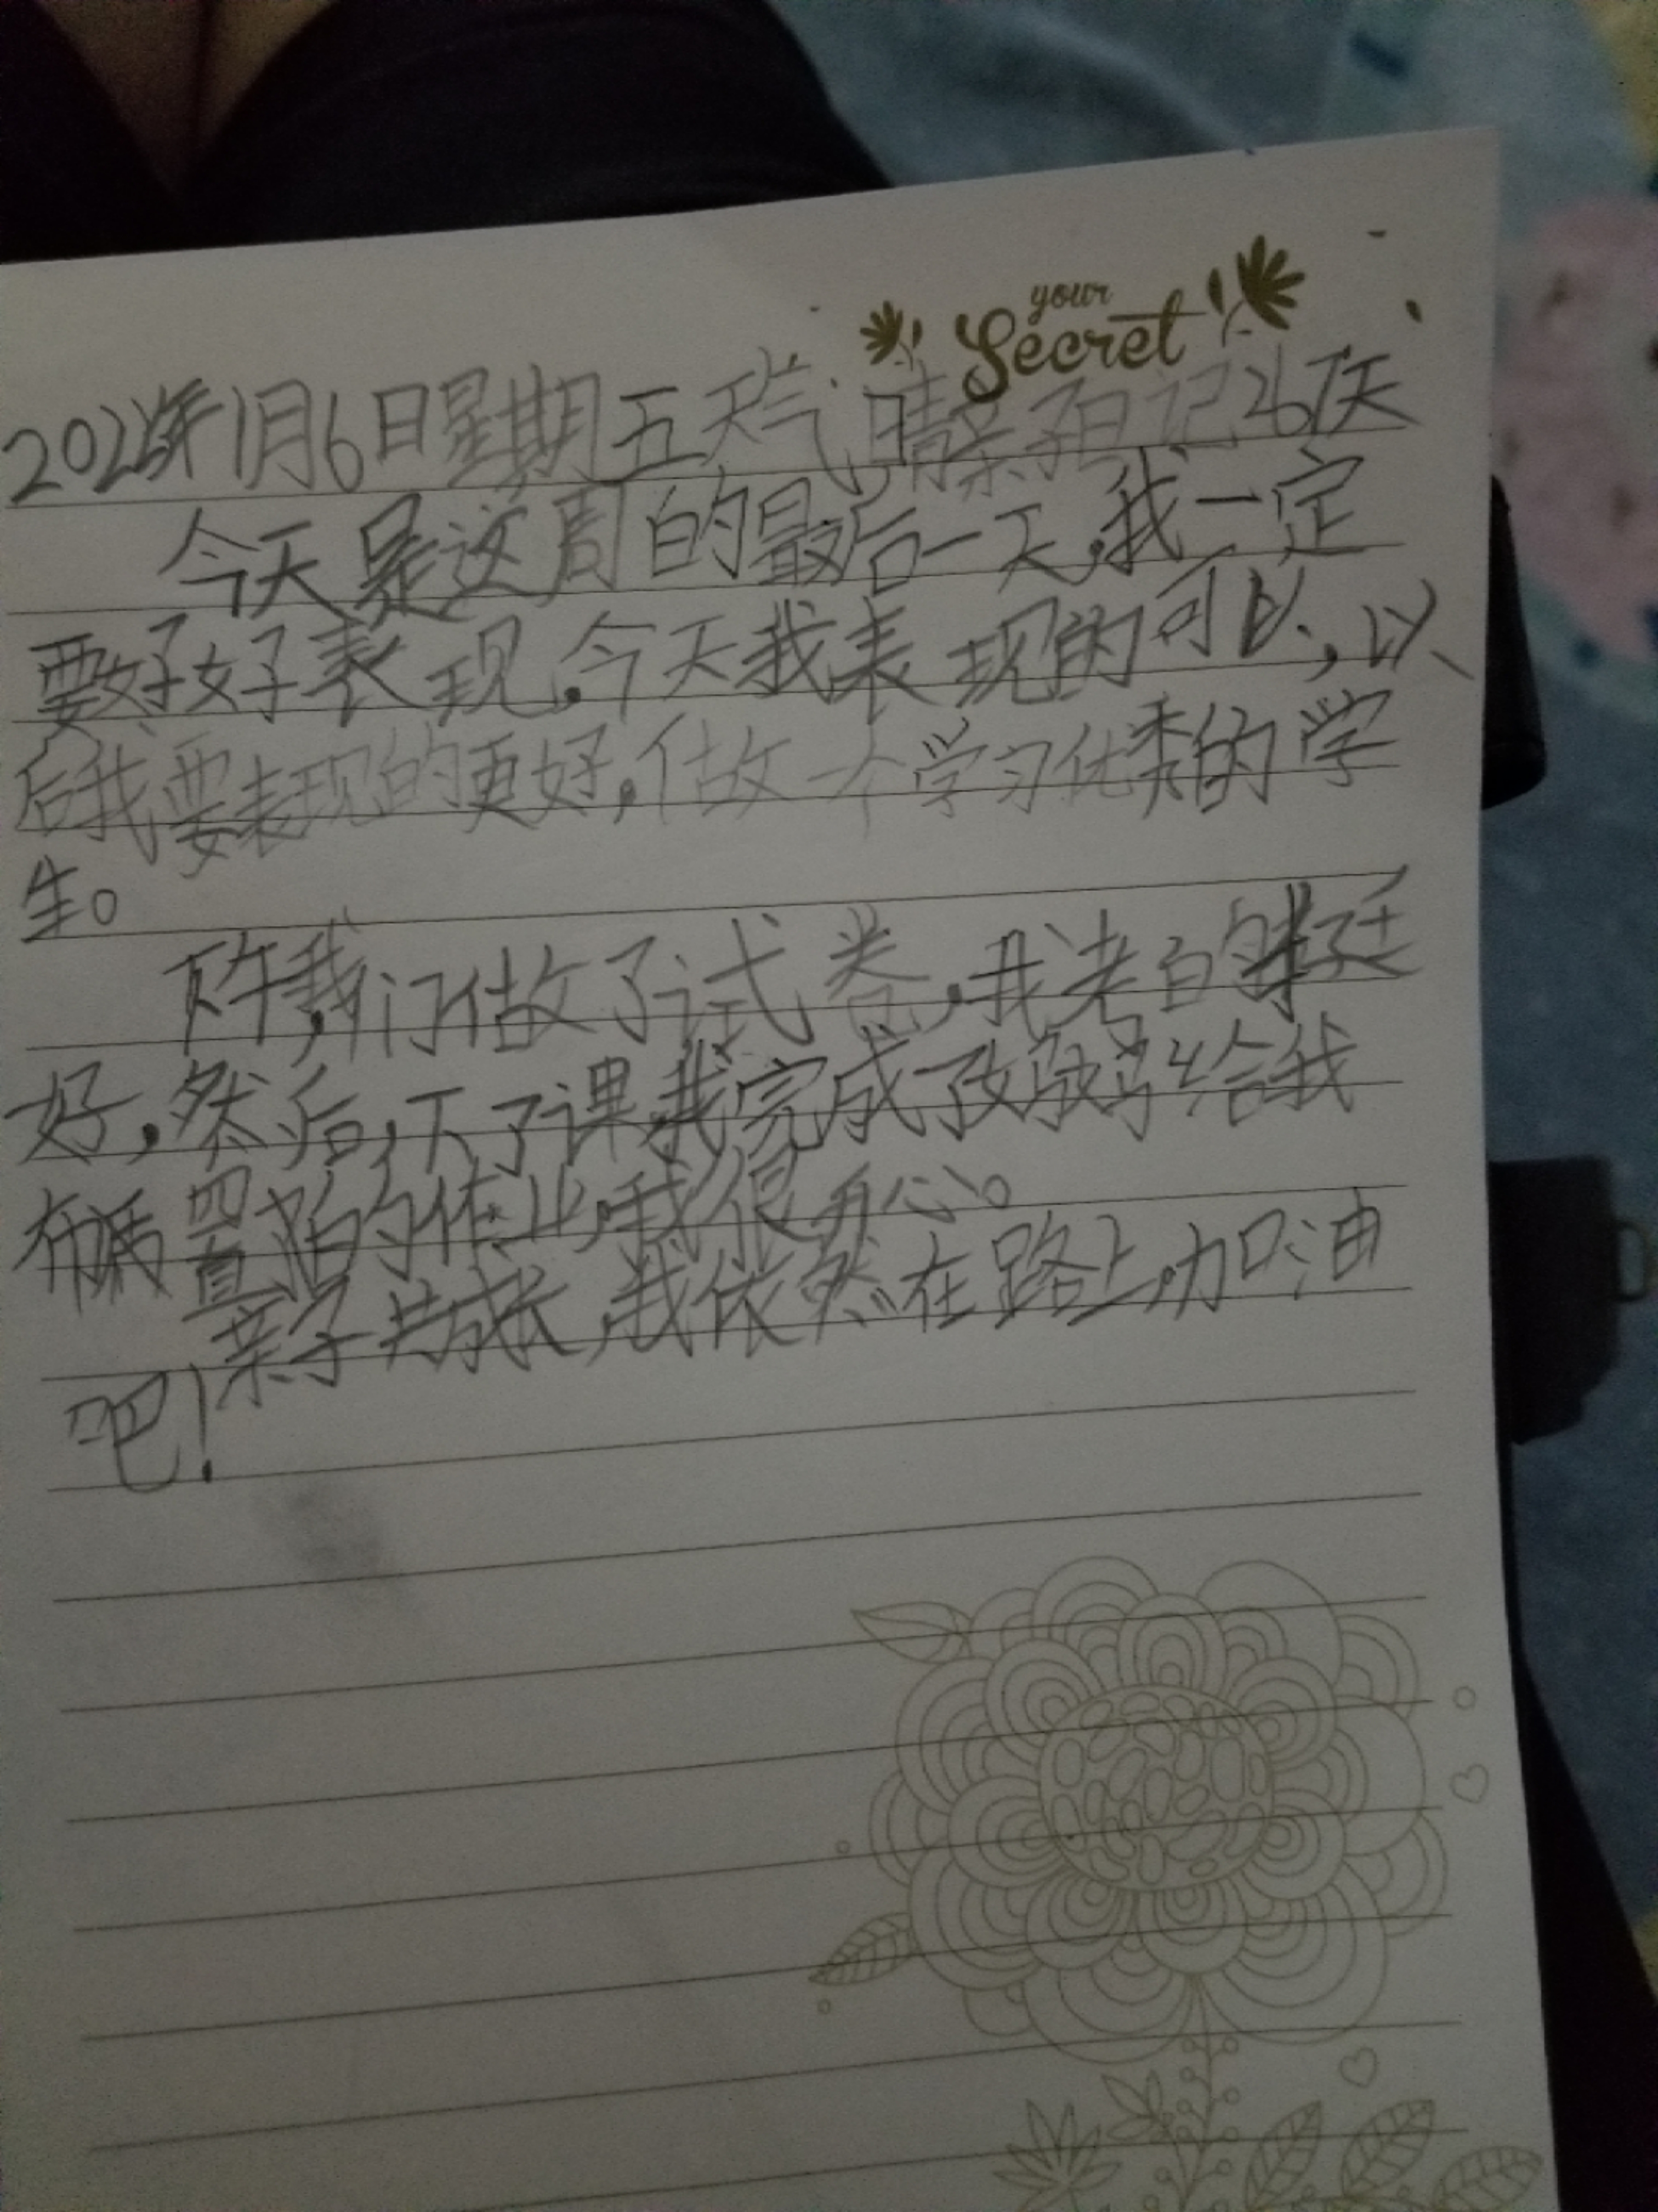 your
Secret
年1月6日星期五天气晴亲子日记267天
今天是这周的最后一天,我一定
要好好表现.今天我表现的可以,以
后我要表现的更好,做一个学习优秀的学
生。
下午,我们做了试卷,我考的挺
好,然后,下了课我完成了妈妈给我
布置的作业,我很开心。
亲子共成长,我依然在路上,加油
吧!